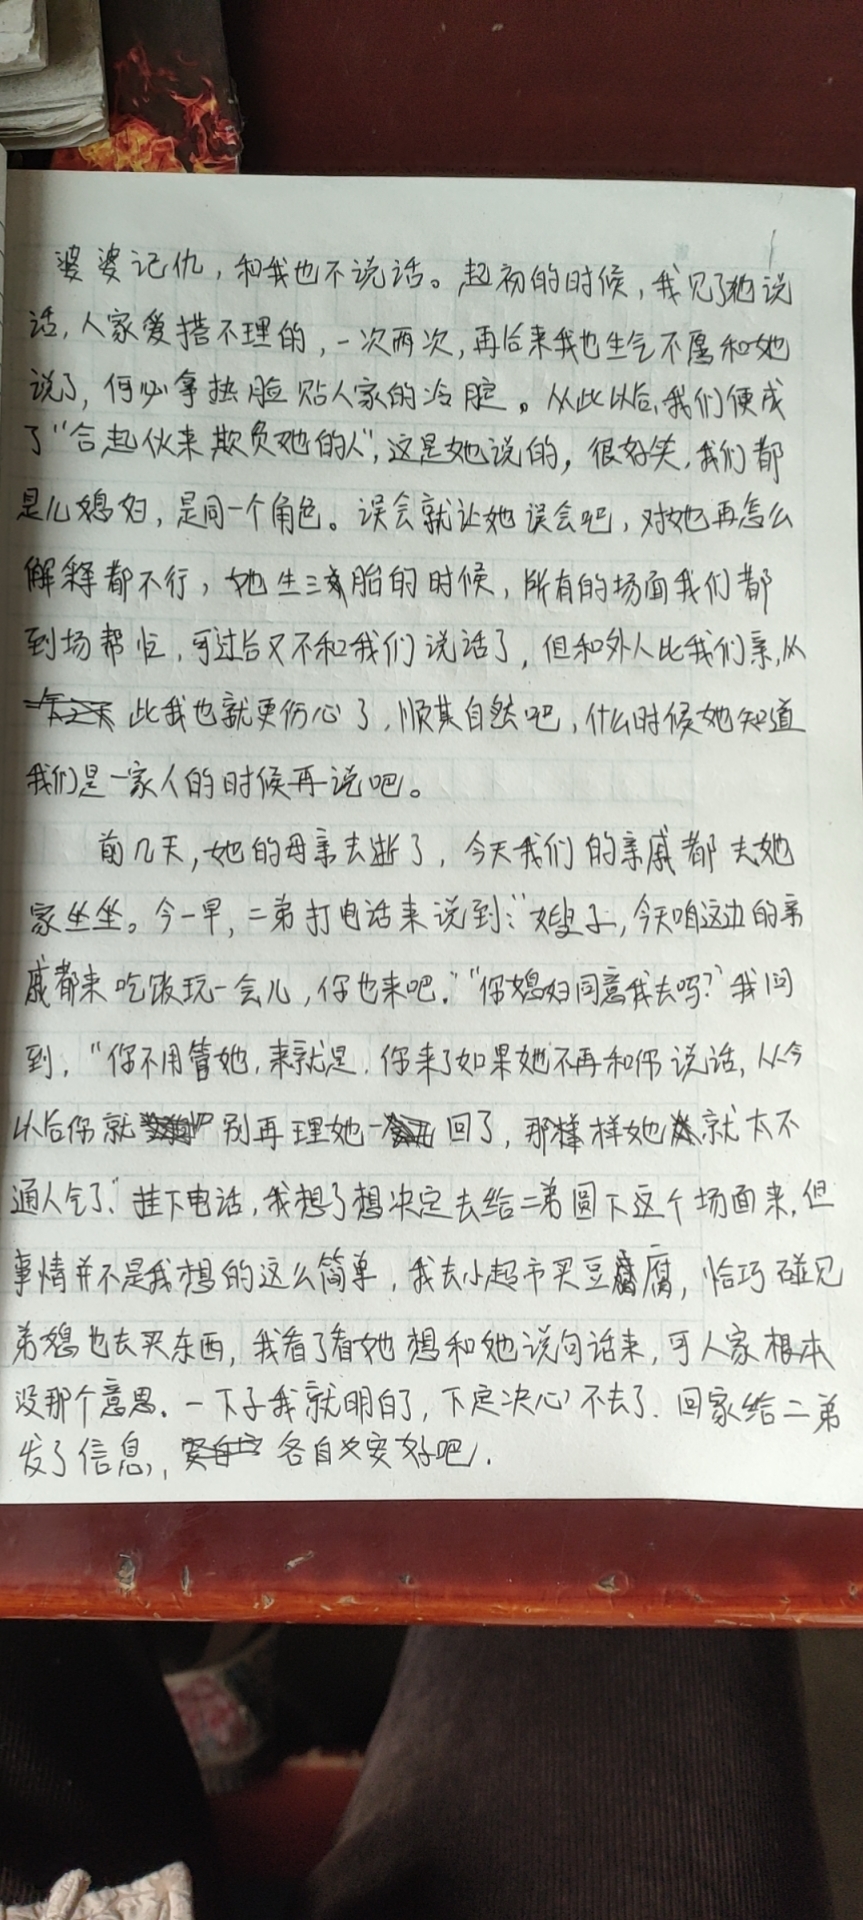 婆婆记仇，和我也不说话。起初的时候，我见了她说
话，人家爱搭不理的，一次两次，再后来我也生气不愿和她
说了，何必拿热脸贴人家的冷腚。从此以后，我们便成
了“合起伙来欺负她的人”，这是她说的，很好笑，我们都
是儿媳妇，是同一个角色。误会就让她误会吧，对她再怎么
解释都不行，她生三胎的时候，所有的场面我们都
到场帮忙，可过后又不和我们说话了，但和外人比我们亲，从
此我也就更伤心了，顺其自然吧，什么时候她知道
我们是一家人的时候再说吧。
前几天，她的母亲去逝了，今天我们的亲戚都去她
家坐坐。今一早，二弟打电话来说到：“嫂子，今天咱这边的亲
戚都来吃饭玩一会儿，你也来吧。”“你媳妇同意我去吗？”我问
到，“你不用管她，来就是，你来了如果她不再和你说话，从今
以后你就别再理她一回了，那样样她就太不
通人气了。”挂下电话，我想了想决定去给二弟圆下这个场面来，但
事情并不是我想的这么简单，我去小超市买豆腐，恰巧碰见
弟媳也去买东西，我看了看她想和她说句话来，可人家根本
没那个意思，一下子我就明白了，下定决心不去了，回家给二弟
发了信息，各自安好吧。